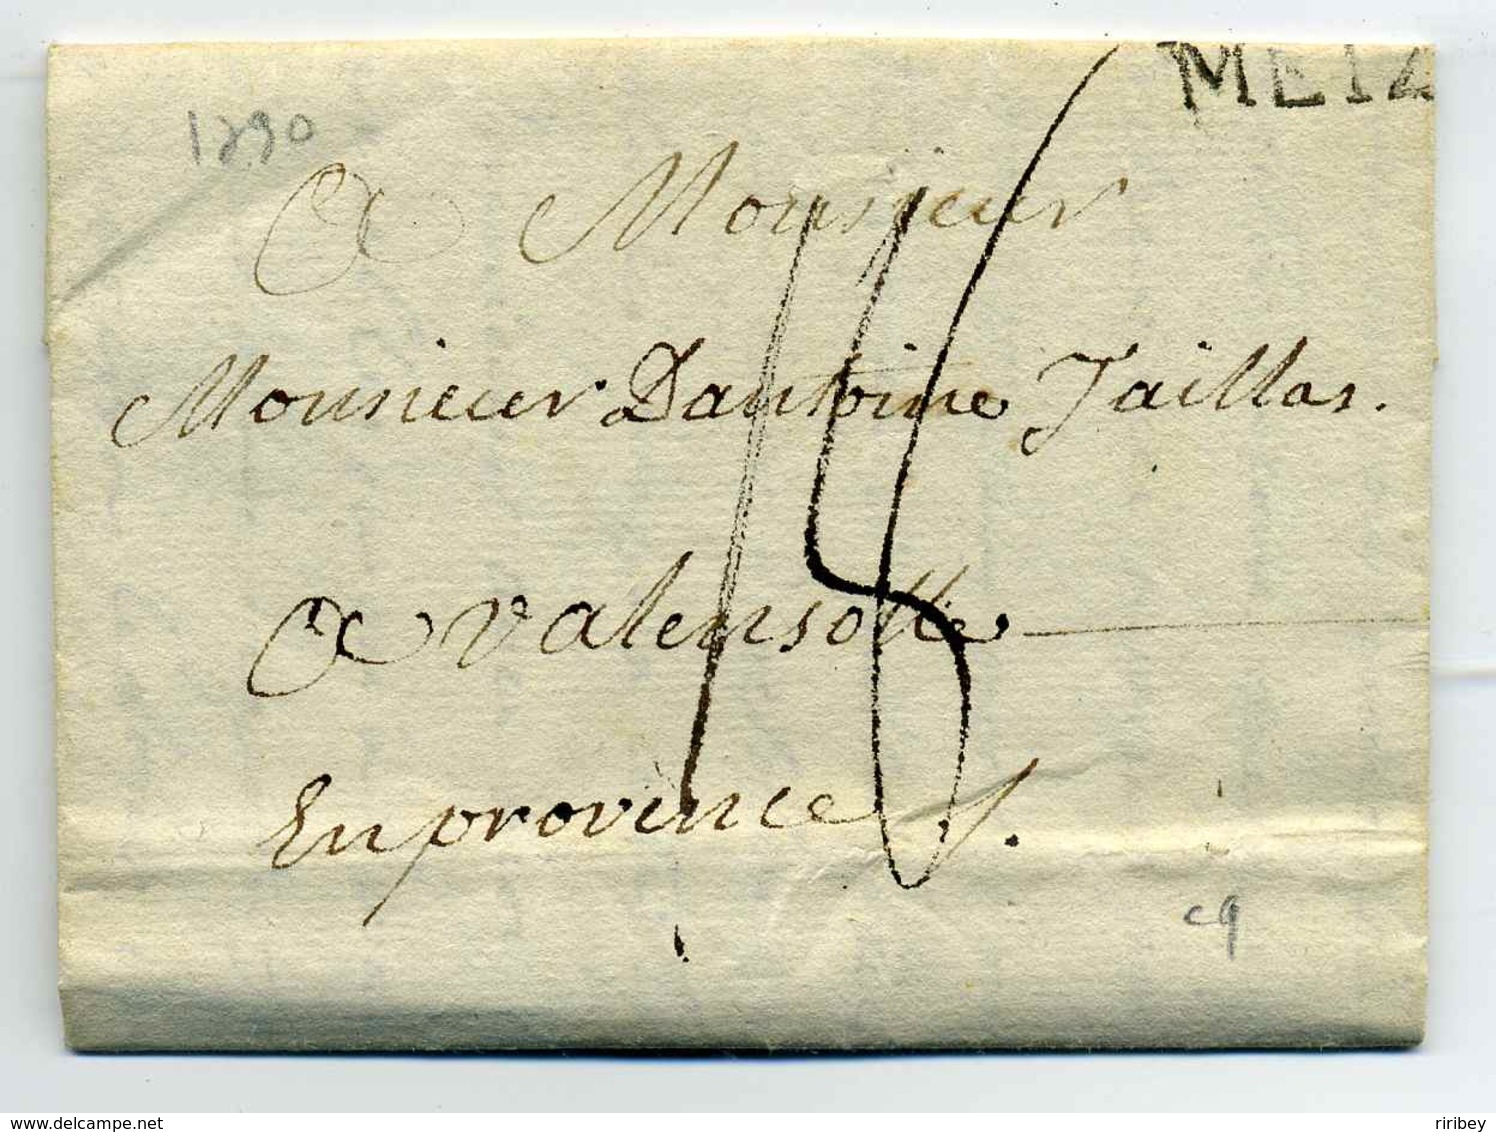 METZ
1790
A Monsieur
Monsieur Dantoine Taillas.
A valensolle
En provence
18
c9
www.delcampe.net
riribey